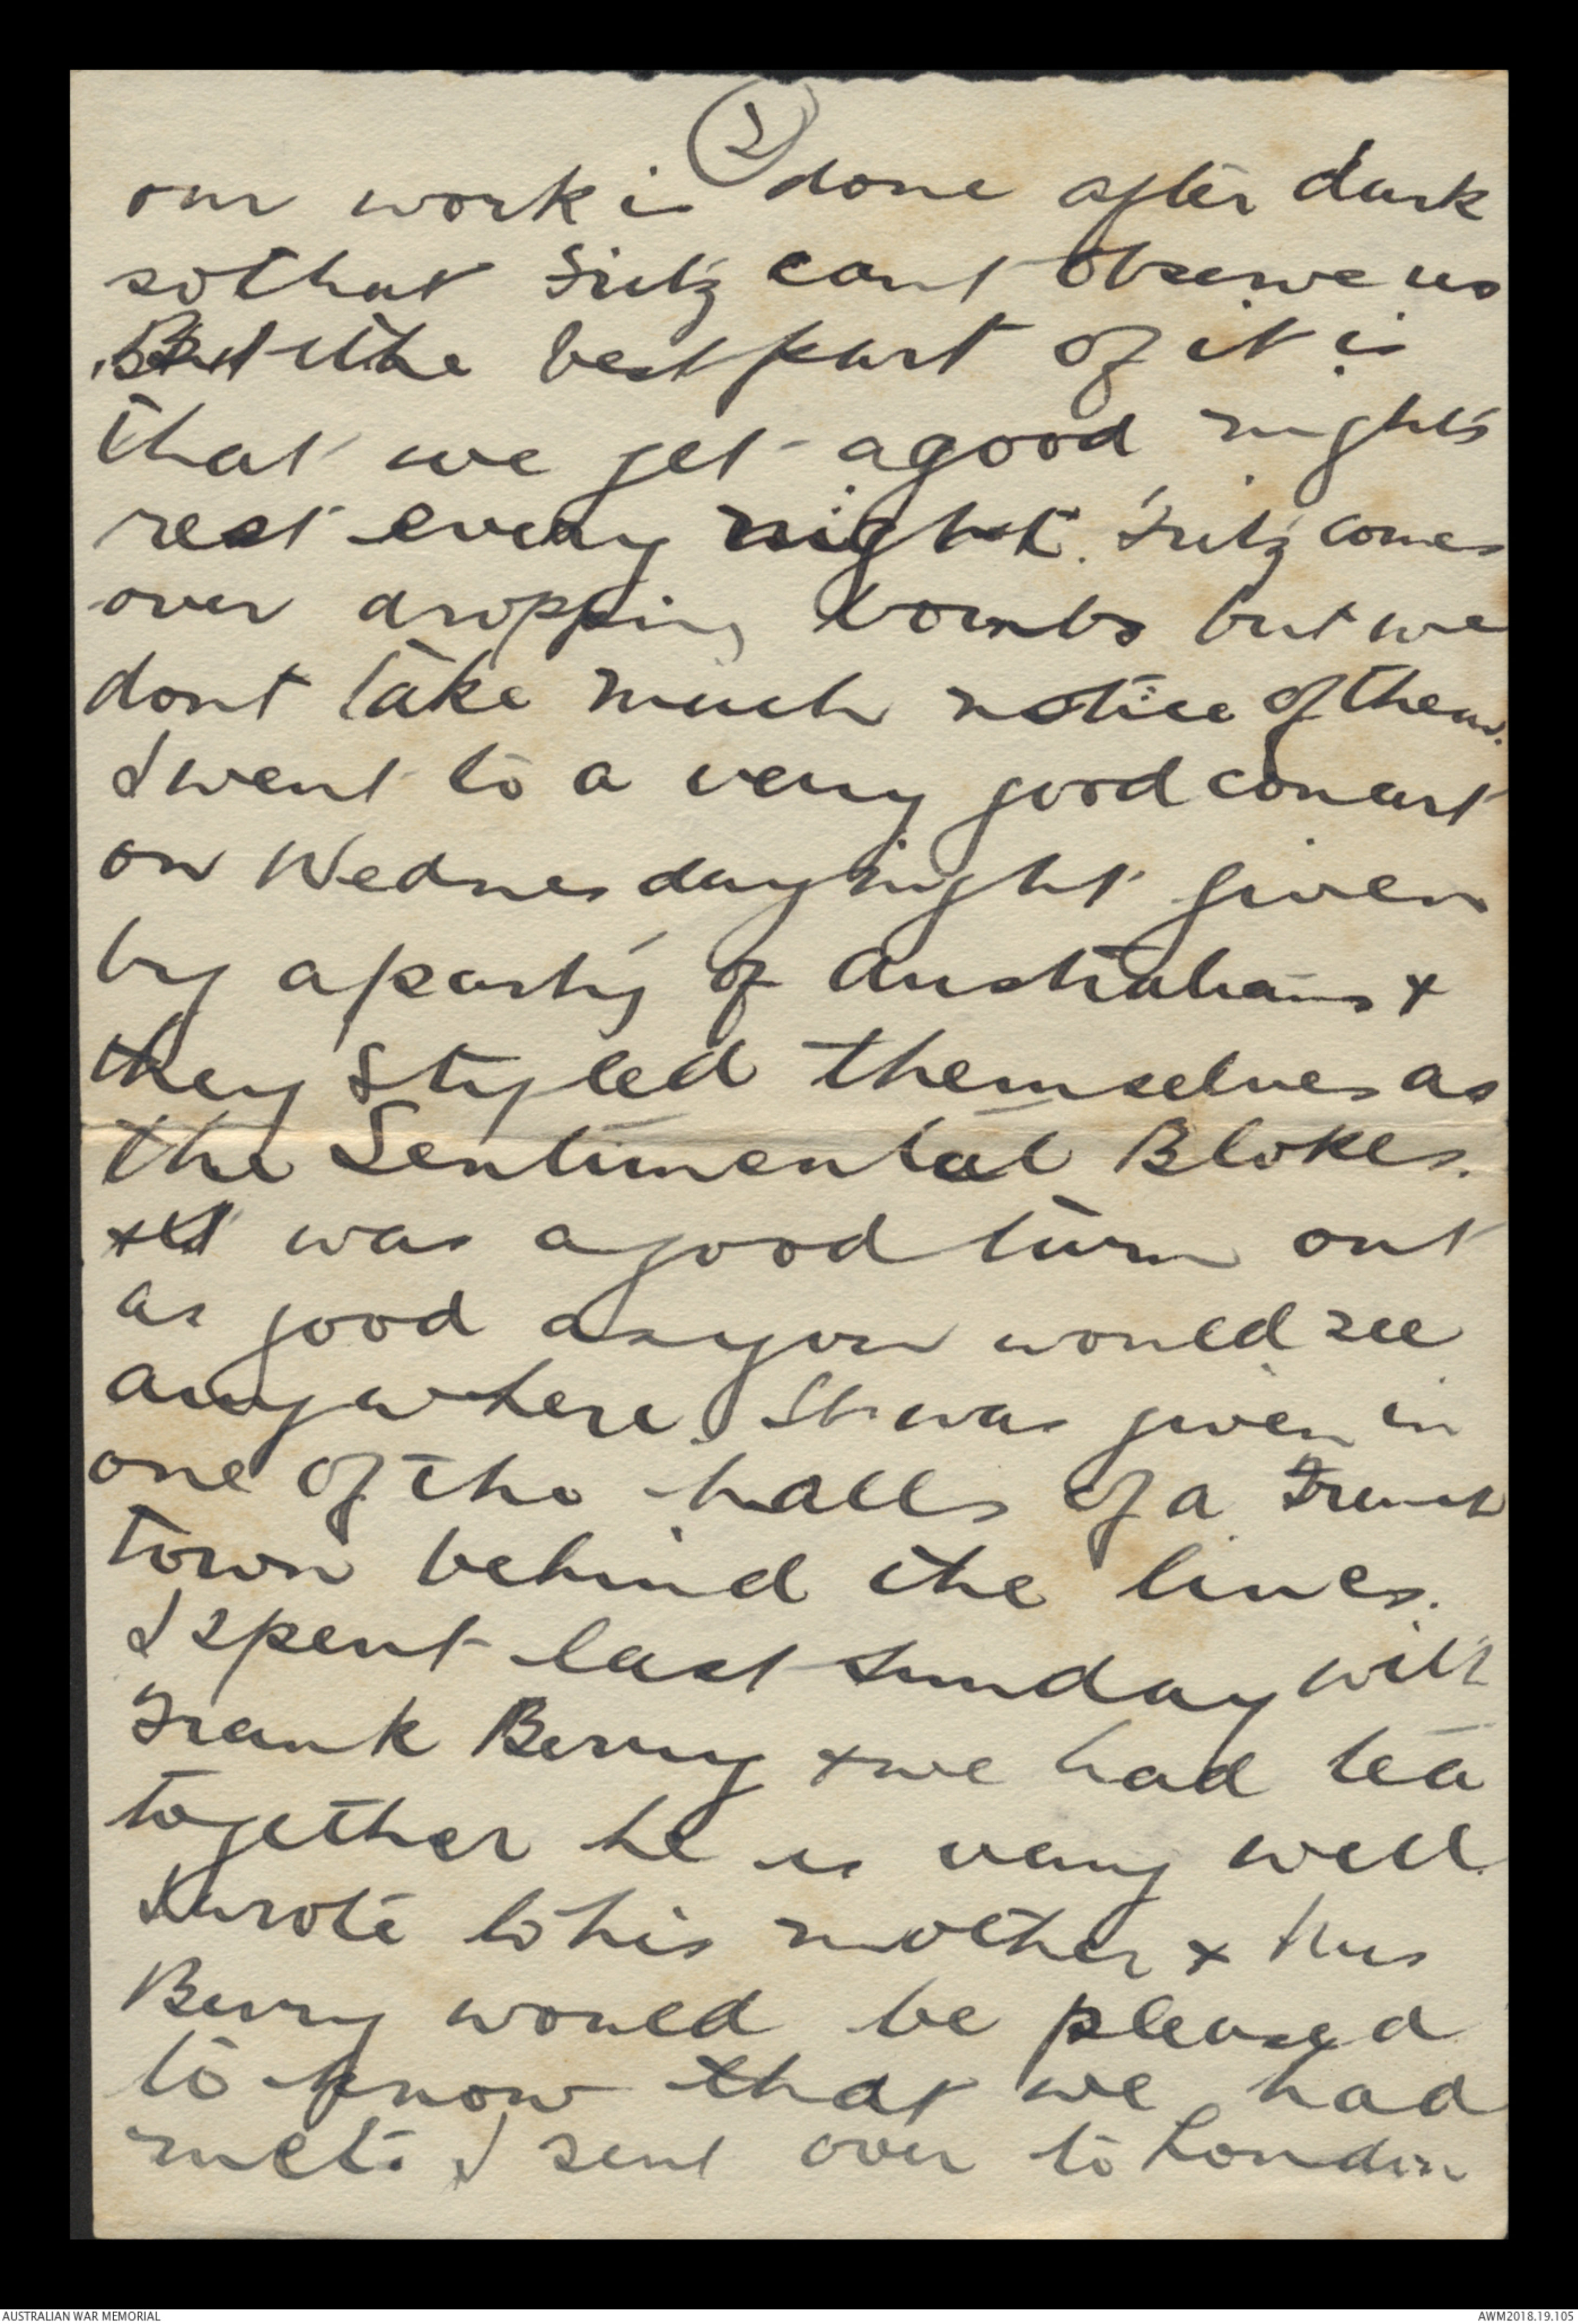 (2)
our work is done after dark
so that Fritz cant observe us
But the best part of it is
that we get a good night's
rest every night. Fritz comes
over dropping bombs but we
dont take much notice of them.
I went to a very good concert
on Wednesday night given
by a party of Australians +
they styled themselves as
the Sentimental Blokes.
+ it was a good turn out
as good as you would see
anywhere. It was given in
one of the halls of a French
town behind the lines.
I spent last Sunday with
Frank Berry + we had tea
together he is very well.
I wrote to his mother + Mrs
Berry would be pleased
to know that we had
met. I sent over to London
AUSTRALIAN WAR MEMORIAL
AWM2018.19.105